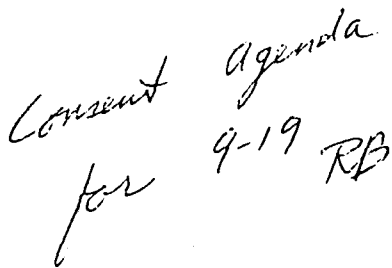 Consent Agenda
for 9-19 RB